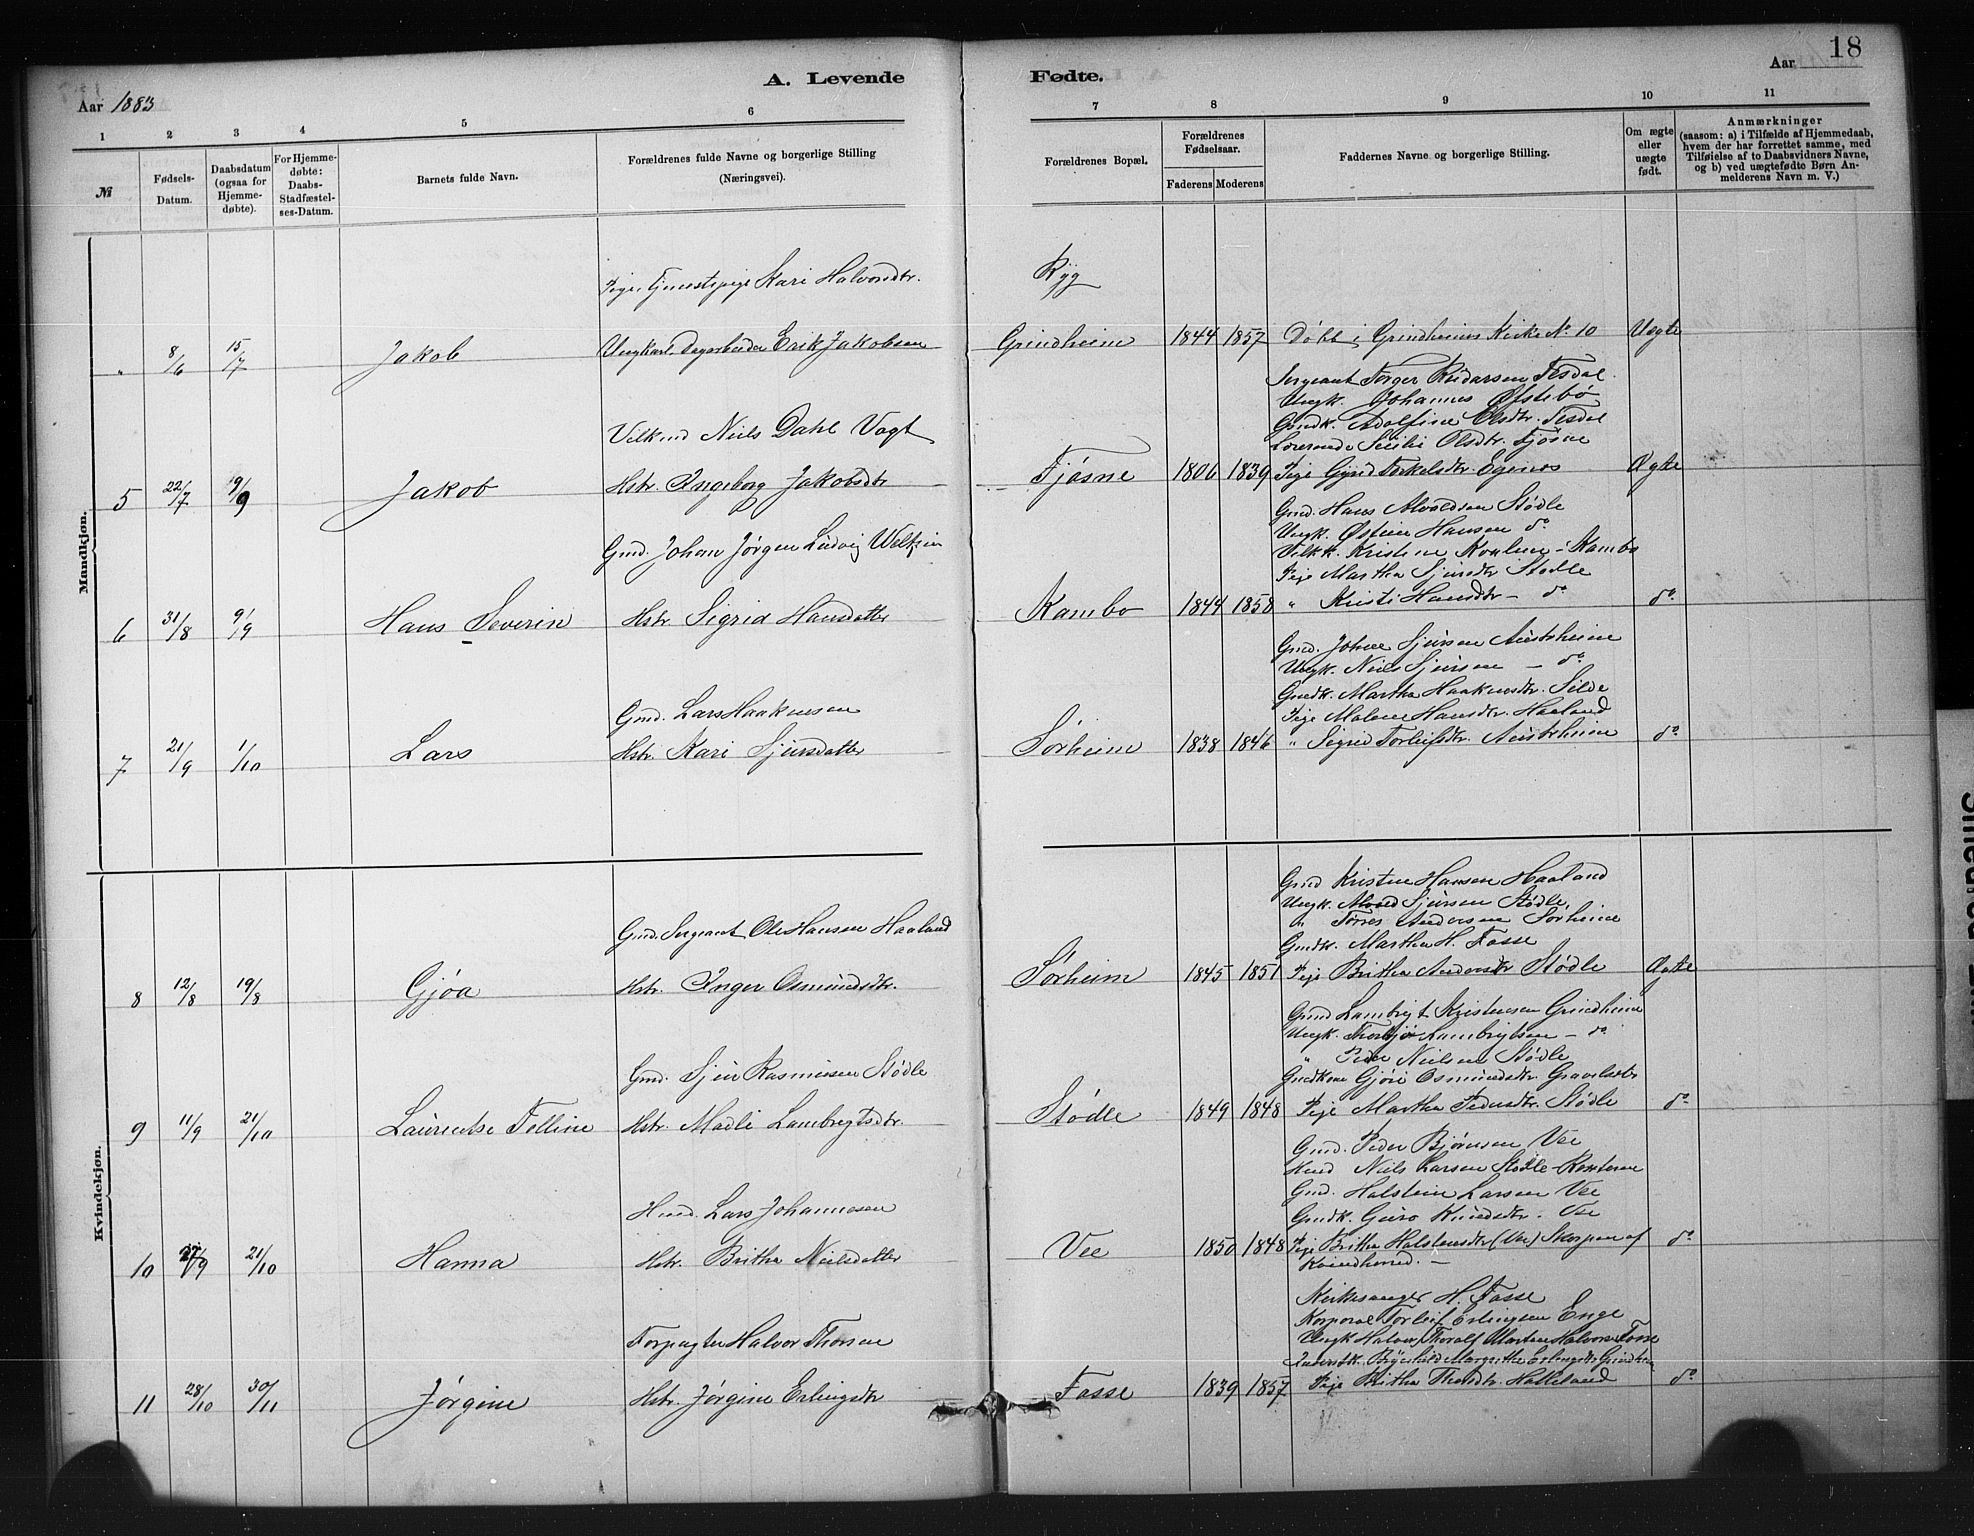 18
A. Levende Fødte.
Aar 1883
Aar
1 2 3 4 5 6 7 8 9 10 11
№
Fødsels-Datum.
Daabsdatum (ogsaa for Hjemme-døbte).
For Hjemme-døbte: Daabs-Stadfæstel-ses-Datum.
Barnets fulde Navn.
Forældrenes fulde Navne og borgerlige Stilling (Næringsvei).
Forældrenes Bopæl.
Forældrenes Fødselsaar.
Faderens Moderens
Faddernes Navne og borgerlige Stilling.
Om ægte eller uægte født.
Anmærkninger
(saasom: a) i Tilfælde af Hjemmedaab, hvem der har forrettet samme, med Tilføielse af to Daabsvidners Navne, og b) ved uægtefødte Børn An-melderens Navn m. V.)
Mandkjøn.
Pige, Tjenestepige Kari Halvorsdtr. Ryg
" 8/6 15/7 Jakob Ungkarl Dagarbeider Erik Jakobsen Grindheim 1844 1857 Døbt i Grindheims Kirke No 10 Uægte
Sergeant Torger Reidarsen Tesdal.
Ungk. Johannes Østebø
Gmdk. Adolfine Olsdtr. Tesdal
Vilkmd Niels Dahl Vogt
Lærermade Seilie Olsdtr. Fjøsne
5 22/7 9/9 Jakob Hstr. Ingeborg Jakobsdtr Fjøsne 1806 1839 Pige Gyrid Torkelsdtr. Egenes Ægte
Gmd. Hans Alvaldsen Stødle
Ungk. Østein Hansen do
Gmd. Johan Jørgen Ludvig Welken
Vilkk. Kristine Karline - Kambo
Pige Martha Sjursdtr Stødle
6 31/8 9/9 Hans Severin Hstr. Sigrid Hansdatter Kambo 1844 1858 " Kristi Hansdtr - do do
Gmd. Johne Sjursen Austrheim
Ungk. Niels Sjursen - do
Gmdk. Martha Haaknsdtr. Silde
Gmd. Lars Haaknsen
Pige Malene Hansdtr. Haaland
7 21/9 1/10 Lars Hstr. Kari Sjursdatter Sørheim 1838 1846 " Sigrid Torleifsdtr. Austrheim do
Kvindekjøn.
Gmd Kristen Hansen Haaland
Ungk. Alvald Sjursen Stødle,
" Torres Andersen Sørheim
Gmd. Sergeant Ole Hansen Haaland
Gmdk. Martha H. Fosse
8 12/8 19/8 Gjøa Hstr. Inger Osmundsdtr. Sørheim 1845 1851 Pige Britha Andersdtr Stødle Ægte
Gmd Lambrigt Kristensen Grindheim
Ungk. Thorbjø Lambrigtsen - do
" Peder Nielsen Stødle
Gmd. Sjur Rasmussen Stødle
Gmdkone Gjøri Osmundsdtr. Gravelsæter
9 11/9 21/10 Laurentse Telline Hstr. Madli Lambregtsdtr. Stødle 1849 1848 Pige Martha Pedersdtr. Stødle do
Gmd. Peder Bjørnsen Vee
Hmd Niels Larsen Stødle-
Gmd. Halstein Larsen Vee
Hmd. Lars Johannesen
Gmdk. Guro Knudsdtr. Vee
10 27/9 21/10 Hanna Hstr. Britha Nielsdatter Vee 1850 1848 Pige Britha Halsteinsdtr (Vee) Skorpen af Kvindherred. - do
Kirkesanger H. Fosse
Korporal Torleif Erlingsen Enge
Forpagter Halvor Thorsen
Ungk Halvor Thoralf Morten Halvorsen Fosse
Brynhild Margrethe Erlingsdtr Grindheim
11 28/10 30/11 Jørgine Hstr. Jørgine Erlingsdtr Fosse 1839 1857 Pige Britha Thorsdtr. Halleland do